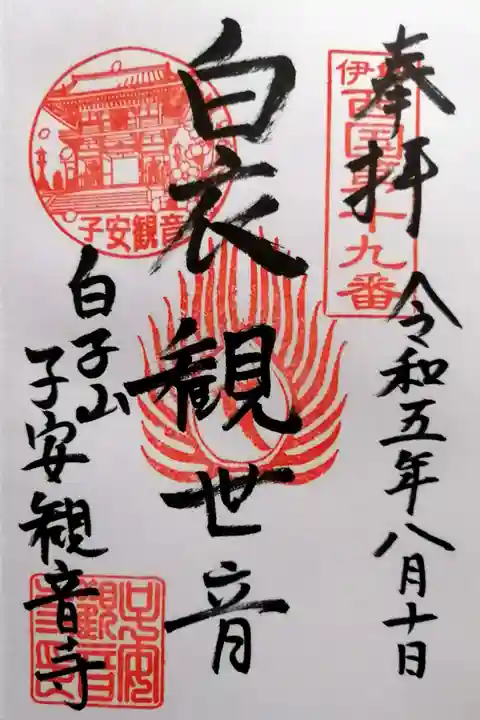 奉拝
令和五年八月十日
伊勢西国第十九番
白衣観世音
子安観音
白子山
子安観音寺